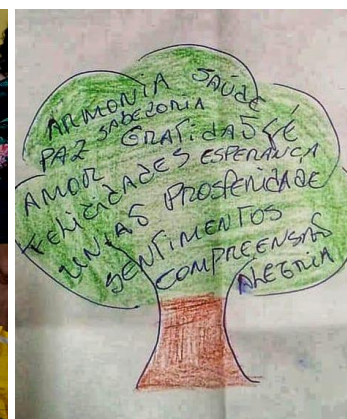 ARMONIA SAÚDE
PAZ SABEDORIA
GRATIDÃO FÉ
AMOR ESPERANÇA
FELICIDADES
UNIÃO PROSPERIDADE
SENTIMENTOS
COMPREENSÃO
ALEGRIA